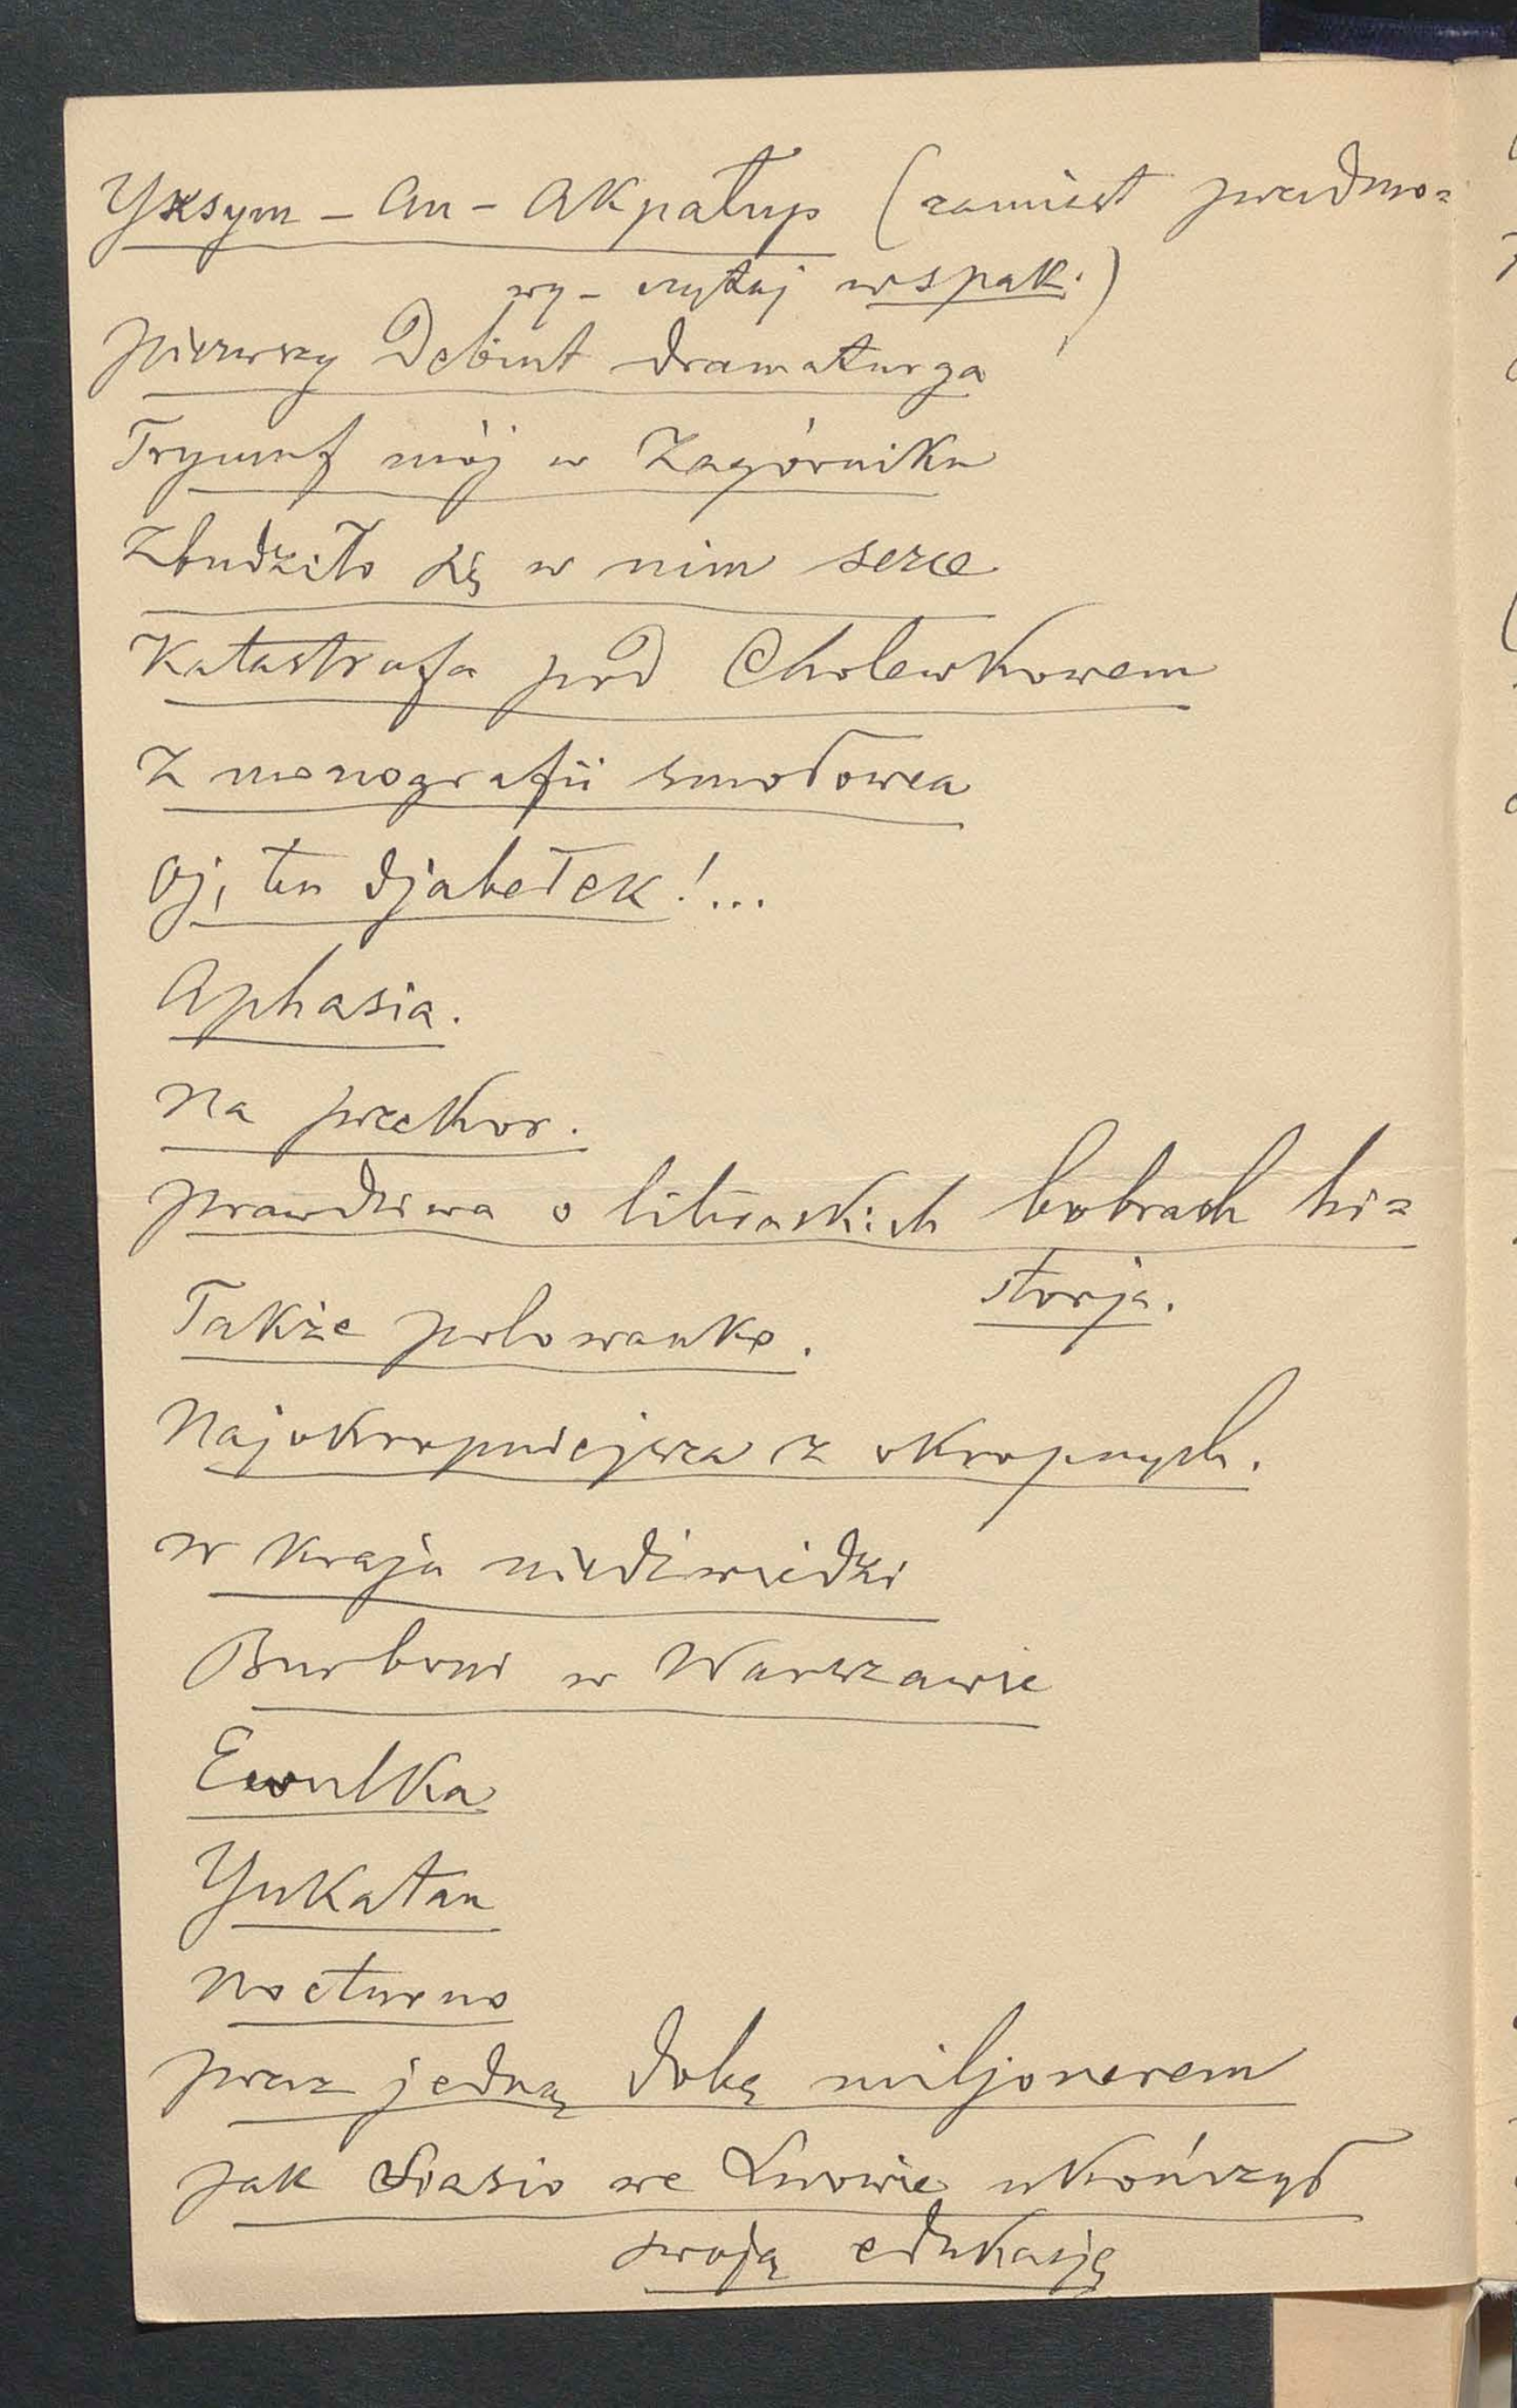 Yksym-an-akpałup (zamiast przedmo=
wy - czytaj wspak.)
Pierwszy Debiut dramaturga
Tryumf mój w Zagórniku
Zbudziło się w nim serce
Katastrofa pod Cholewkowem
Z monografii smołowca
Oj, ten djabełek!...
Aphasia.
Na przekor.
Prawdziwa o litewskich bobrach hi=
storja.
Także polowanko.
Najokropniejsza z okropnych.
W kraju niedźwiedzi
Burboni w Warszawie
Ewulka
Yukatan
Nocturno
Przez jedną dobę miljonerem
Jak Stasio we Lwowie ukończył
swoją edukasję